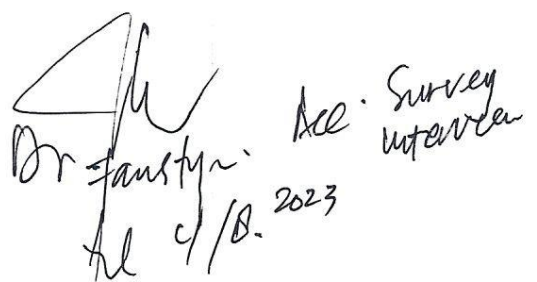 Dr Faustyn.
Acc. Survey
interview
4/8.2023